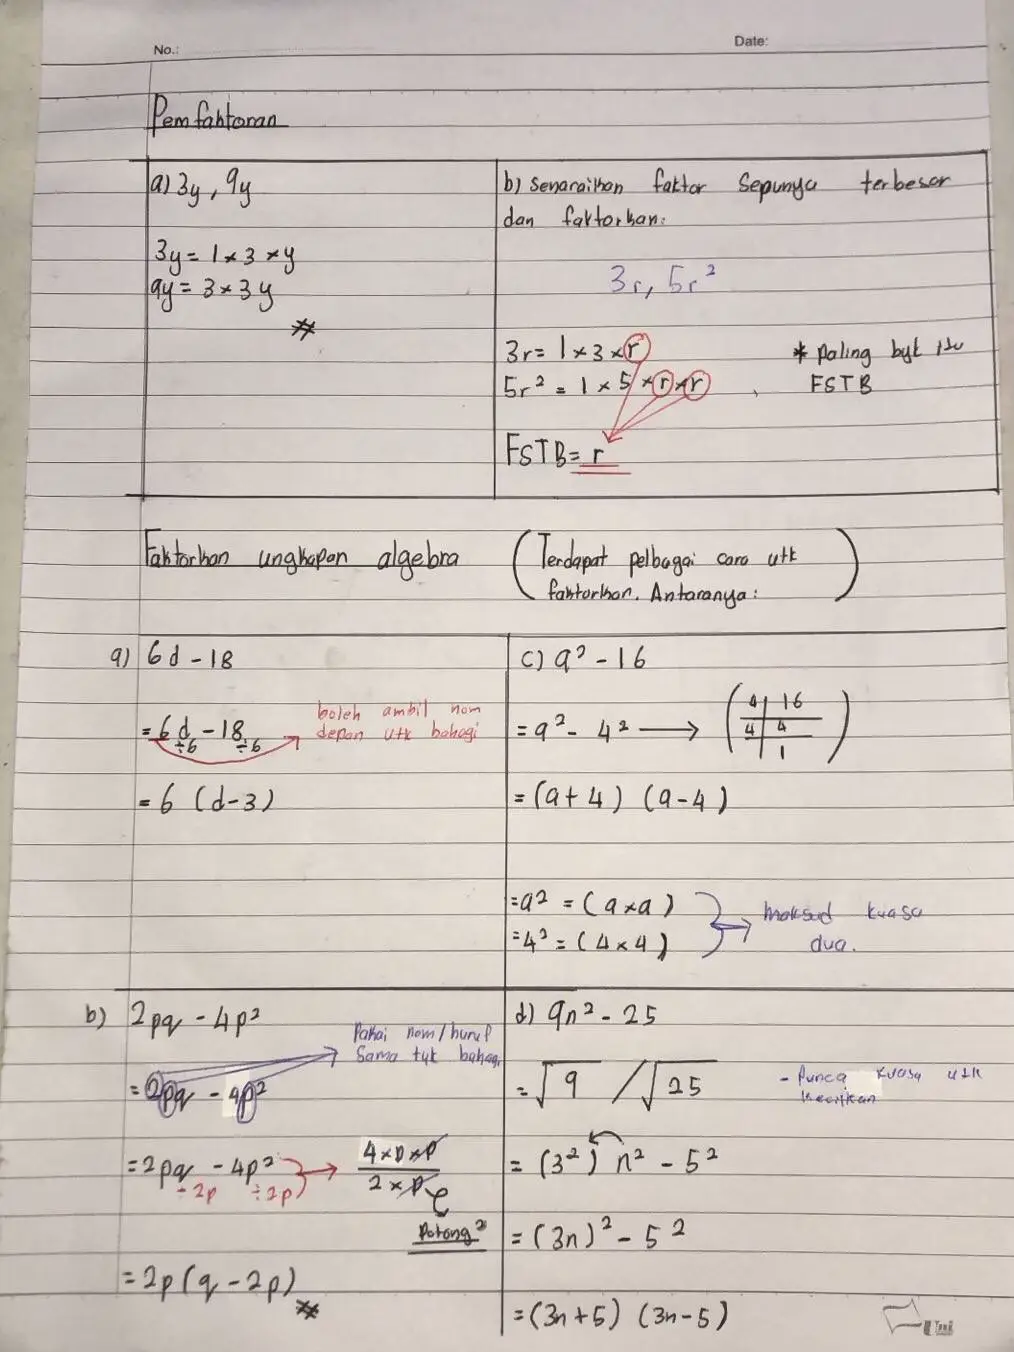 No.:
Date:
Pemfaktoran
a) 3y, 9y
3y = 1 × 3 × y
9y = 3 × 3y
b) Senaraikan faktor Sepunya terbesar
dan faktorkan:
3r, 5r²
3r = 1 × 3 × r
5r² = 1 × 5 × r × r
* paling byk itu
FSTB
FSTB = r
Faktorkan ungkapan algebra
(Terdapat pelbagai cara utk
faktorkan. Antaranya:)
a) 6d - 18
= 6d - 18
÷6 ÷6
boleh ambil nom
depan utk bahagi
= 6 (d-3)
c) a² - 16
= a² - 4²
4 16
4 4
1
= (a+4) (a-4)
= a² = (a×a)
= 4² = (4×4)
maksud kuasa
dua.
b) 2pq - 4p²
Pakai nom/huruf
Sama tuk bahagi
= 2pq - 4p²
= 2pq - 4p²
÷2p ÷2p
4×p×p
2×p
Potong²
= 2p(q - 2p)
d) 9n² - 25
= √9 / √25
- Punca kuasa utk
kecilkan
= (3²) n² - 5²
= (3n)² - 5²
= (3n+5) (3n-5)